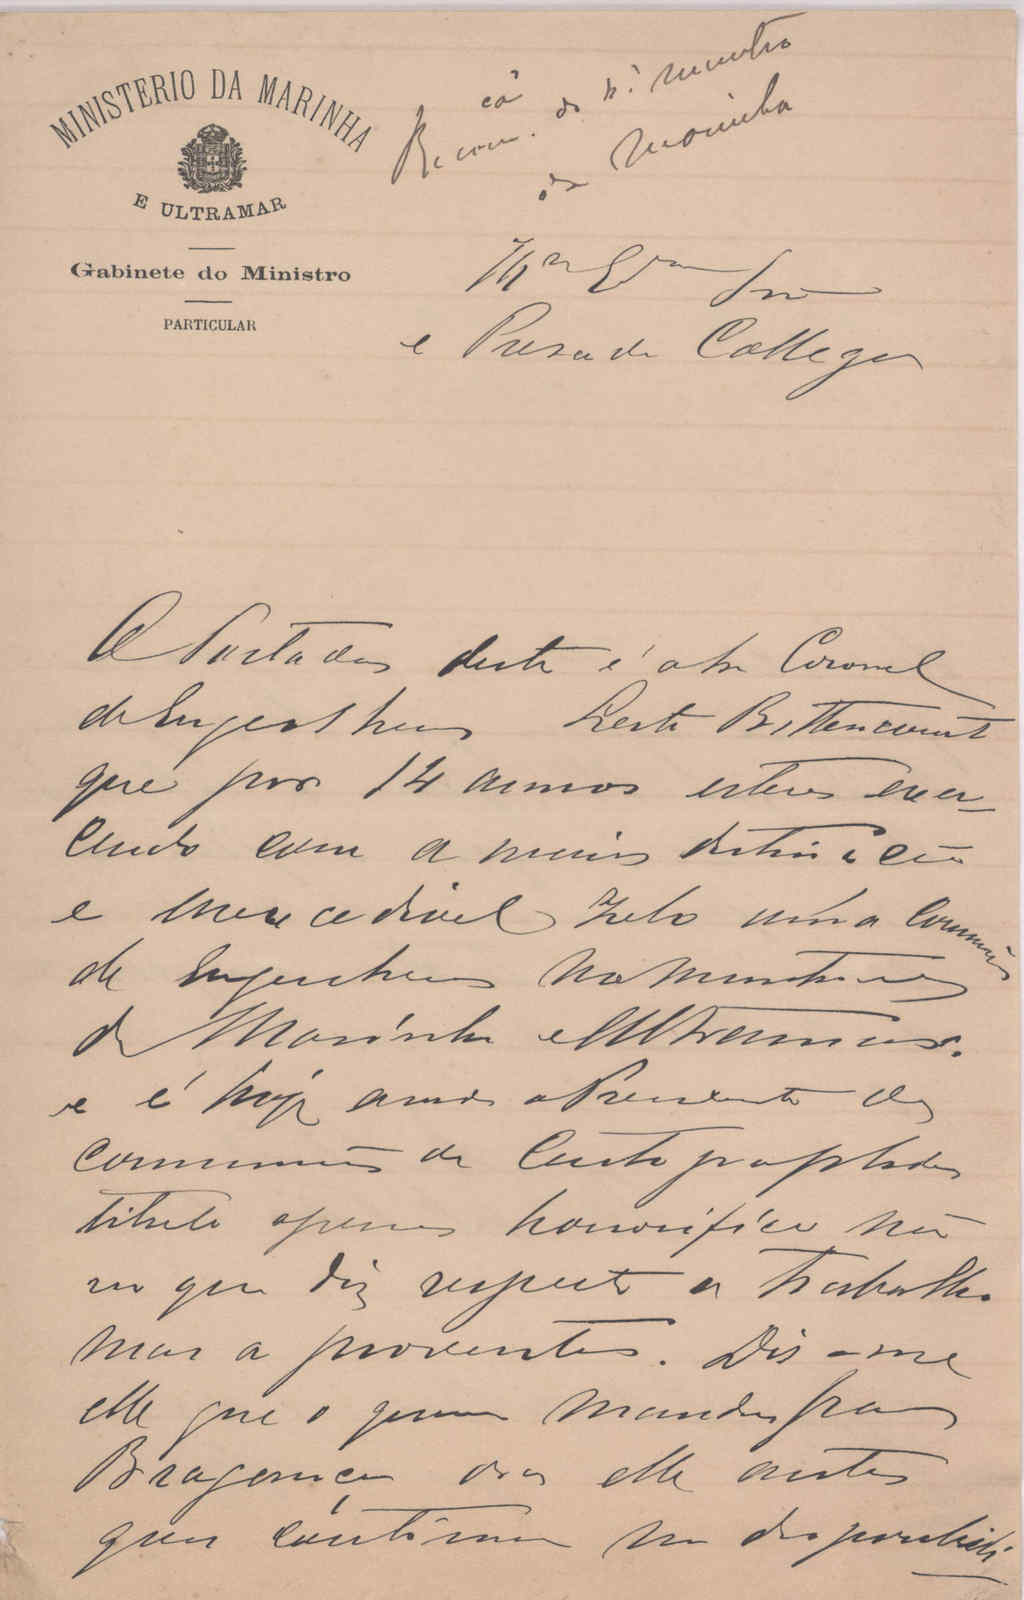 MINISTERIO DA MARINHA
E ULTRAMAR
Gabinete do Ministro
PARTICULAR
Recom.ção do Sr. Ministro
da Marinha
Illmo Exmo Snr
e Presado Collega
O Portador desta é o Coronel
de Engenheiros Bettencourt
que por 14 annos esteve exer-
cendo com a maior distincção
e inexcedivel zelo uma commissão
de Engenheiros no ministerio
da Marinha e Ultramar.
e é hoje ainda o Presidente da
commissão de Cartographia
titulo apenas honorifico não
no que diz respeito a trabalho
mas a proventos. Diz-me
elle que o querem mandar para
Bragança ora elle antes
quer continuar na disponibili-